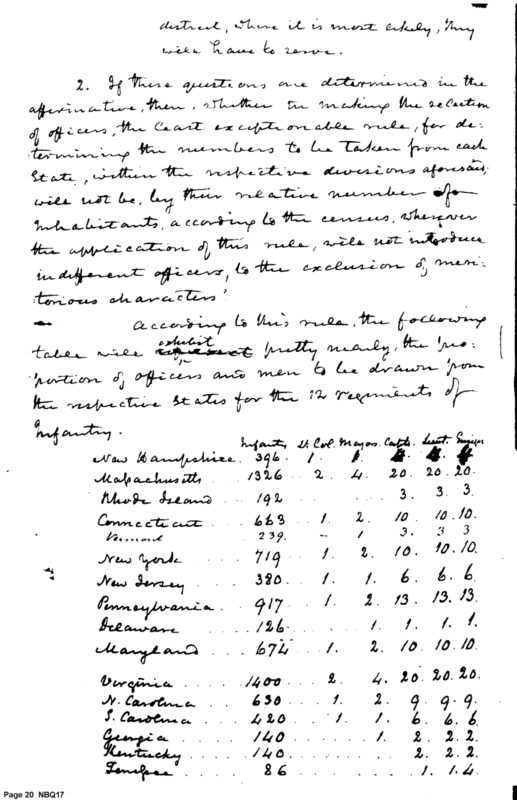 district, where it is most likely, they
will have to serve.
2. If these questions are determined in the
affirmative, then, whether in making the selection
of officers, the least exceptionable rule, for de:
termining the numbers to be taken from each
State, within the respective divisions aforesaid,
will not be, by their relative number of
Inhabitants, according to the census, wherever
the application of this rule, will not introduce
indifferent officers, to the exclusion of meri:
torious characters?
According to this rule, the following
table will exhibit pretty nearly, the pro:
portion of officers and men to be drawn from
the respective States for the 12 regiments of
Infantry.
Infantry Lt Col. Majors. Capts. Lieut. Ensigns
New Hampshire. 396. 1. 1.
Massachusetts 1326 2 4. 20. 20. 20.
Rhode Island 192 3. 3. 3.
Connecticut 663 1. 2. 10. 10. 10.
Vermont 239. - 1 3. 3 3
New York 719 1. 2. 10. 10. 10.
New Jersey 380. 1. 1. 6. 6. 6.
Pennsylvania 917. 1. 2. 13. 13. 13.
Delaware 126. 1. 1. 1. 1.
Maryland 674 1. 2. 10. 10. 10.
Virginia 1400 2. 4. 20. 20. 20.
N. Carolina 630 1. 2. 9. 9. 9.
S. Carolina 420 1. 1. 6. 6. 6.
Georgia 140 1. 2. 2. 2.
Kentucky 140. 2. 2. 2.
Tenessee 86 1. 1. 1.
Page 20 NBQ17